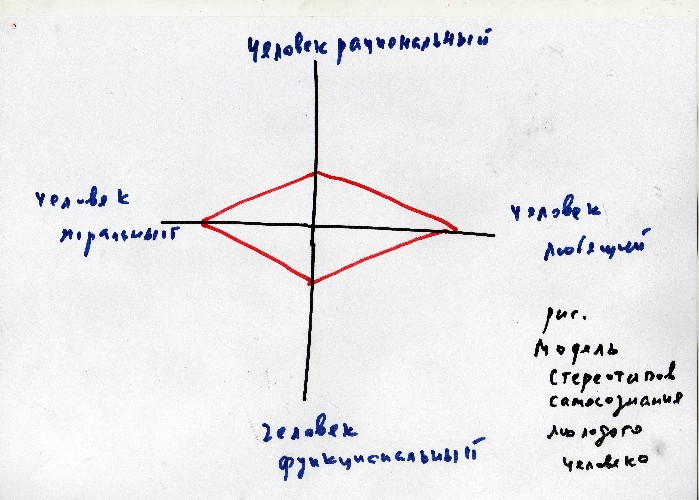 Человек рациональный
Человек
моральный
Человек
любящий
Человек
функциональный
рис.
Модель
Стереотипов
самосознания
молодого
человека